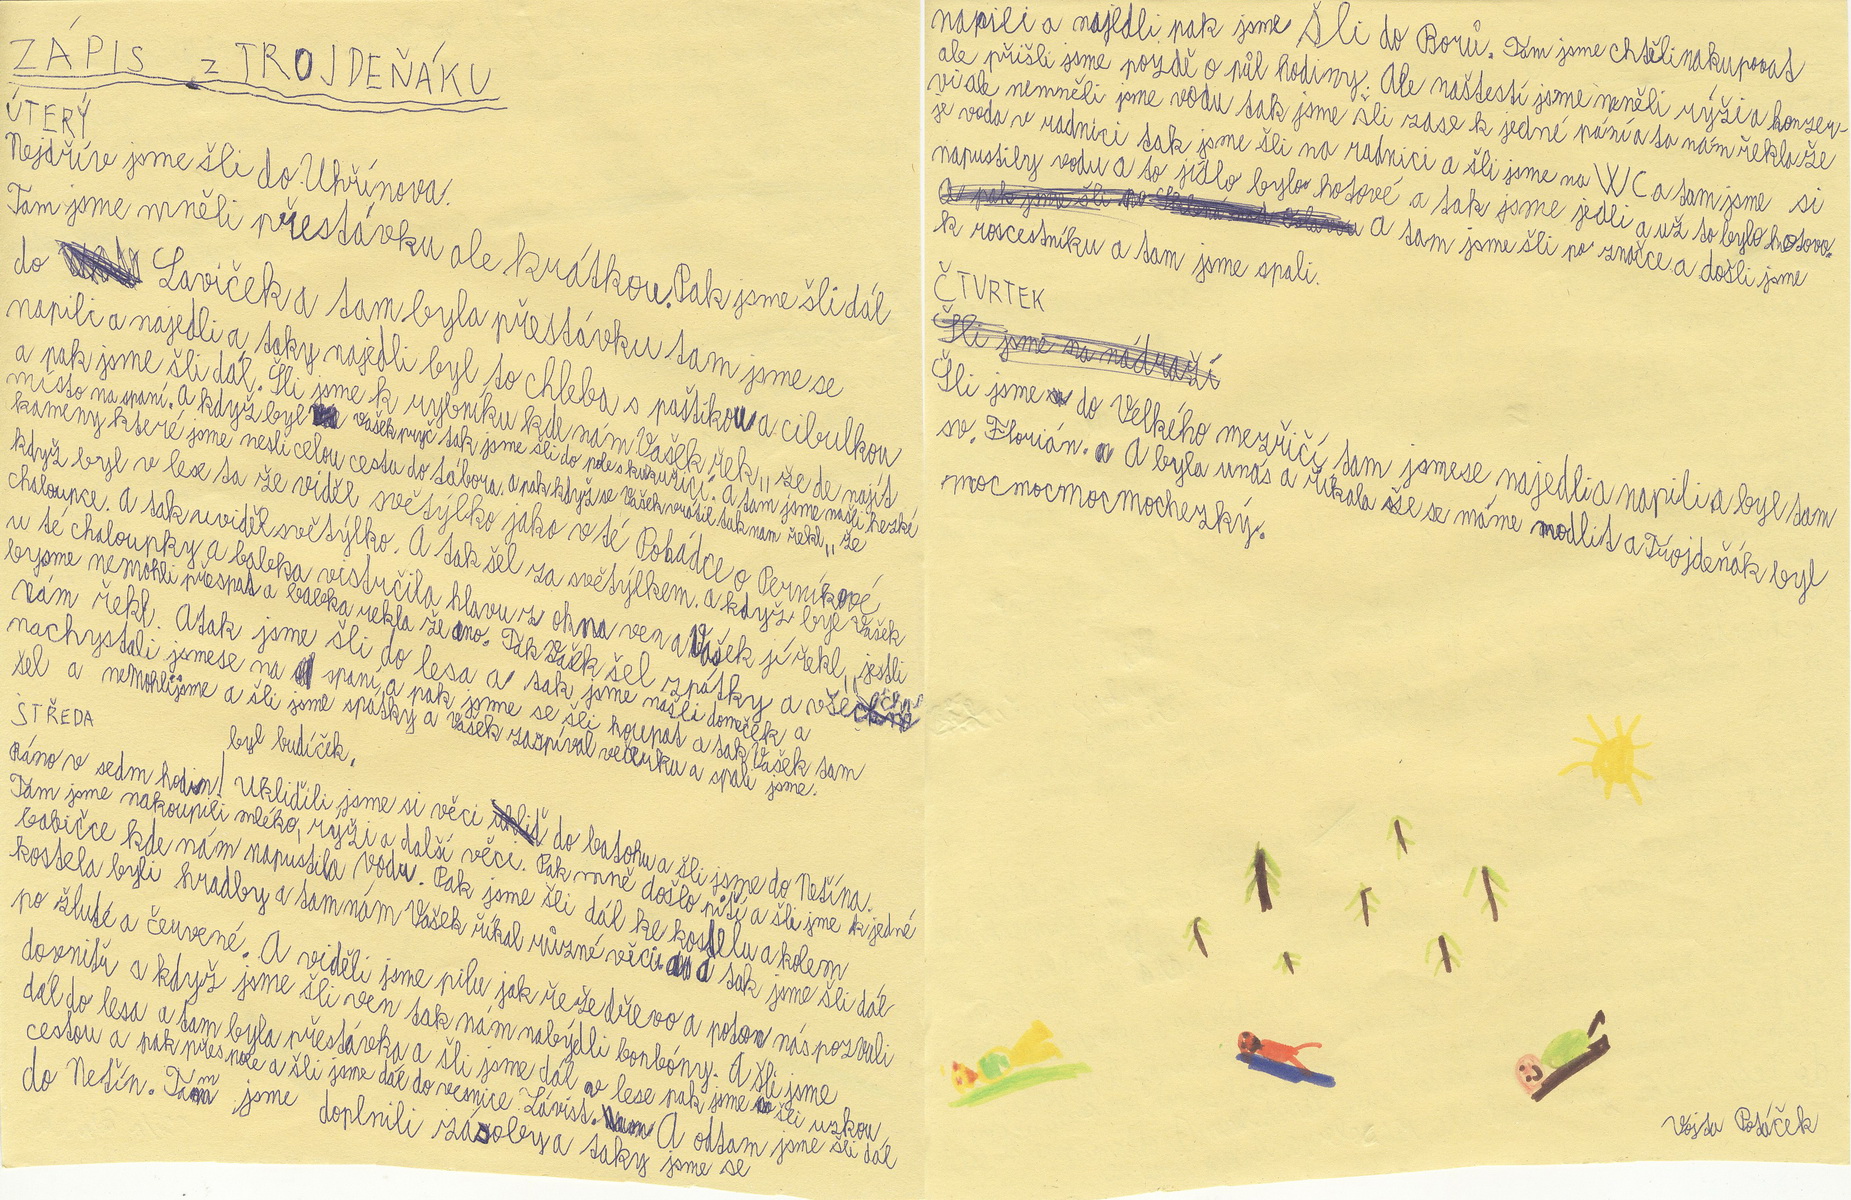 ZÁPIS z TROJDEŇÁKU
ÚTERÝ
Nejdřív jsme šli do Uhřínova.
Tam jsme mněli přestávku ale krátkou. Pak jsme šli dál
do Laviček a tam byla přestávku tam jsme se
napili a najedli a taky najedli byl to chleba s paštikou a cibulkou
a pak jsme šli dál. Šli jsme k rybníku kde nám Vašek řek,, že de najít
místo na spaní. A když byl Vašek pryč tak jsme šli do pole s kukuřicí. A tam jsme našli hezké
kameny které jsme nesli celou cestu do tábora. a pak když se Vašek vrátil tak nám řekl,, že
když byl v lese ta že viděl světýlko jako v té Pohádce o Perníkové
chaloupce. A tak uviděl světýlko. A tak šel za světýlkem. a když byl Vašek
u té chaloupky a babka vistrčila hlavu z okna ven a Vašek jí řekl,, jestli
bysme nemohli přespat a babka rekla že ano. Tak Vašek šel zpátky a všechno
nám řekl. A tak jsme šli do lesa a tak jsme našli domeček a
nachystali jsmese na spaní a pak jsme se šli houpat a tak Vašek tam
šel a nemohlijsme a šli jsme spátky a Vašek zazpíval večerku a spali jsme.
STŘEDA
byl budíček.
Ráno v sedm hodin Uklidili jsme si věci do batohu a šli jsme do Netína.
Tam jsme nakoupili mléko, rýži a další věci. Pak mně došlo pití a šli jme k jedné
babičce kde nám napustila vodu. Pak jsme šli dál ke kostelu a kolem
kostela byli hradby a tam nám Vašek říkal různé věci a tak jsme šli dál
po žluté a červené. A viděli jsme pilu jak řeže dřevo a potom nás pozvali
dovnitř a když jsme šli ven tak nám nabýdli bonbóny. A šli jsme
dál do lesa a tam byla přestávka a šli jsme dál v lese pak jsme šli uzkou
cestou a pak přes pole a šli jsme dál do vesnice Závist. A odtam jsme šli dál
do Netín. Tam jsme doplnili zásoby a taky jsme se
napili a najedli pak jsme Šli do Borů. Tam jsme chtěli nakupovat
ale přišli jsme pozdě o půl hodiny. Ale naštestí jsme mněli rýži a konzer-
vi ale nemněli jsme vodu tak jsme šli zase k jedné pání a ta nám řekla že
je voda v radnici tak jsme šli na radnici a šli jsme na WC a tam jsme si
napustily vodu a to jídlo bylo hotové a tak jsme jedli a už to bylo hotovo.
A pak jsme šli A tam jsme šli po značce a došli jsme
k roscestníku a tam jsme spali.
ČTVRTEK
Šli jsme na nádraží
Šli jsme do Velkého meziříčí tam jsmese najedli a napili a byl tam
sv. Florián. A byla unás a říkala že se máme modlit a Trojdeňák byl
mocmocmocmochezký.
Vojta Potáček